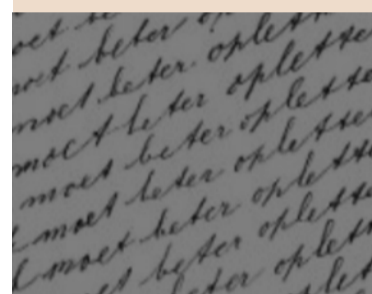 moet beter
moet beter oplette
moet beter oplette
moet beter oplette
moet beter oplette
moet beter oplette
moet beter oplette
moet beter oplette
beter oplett